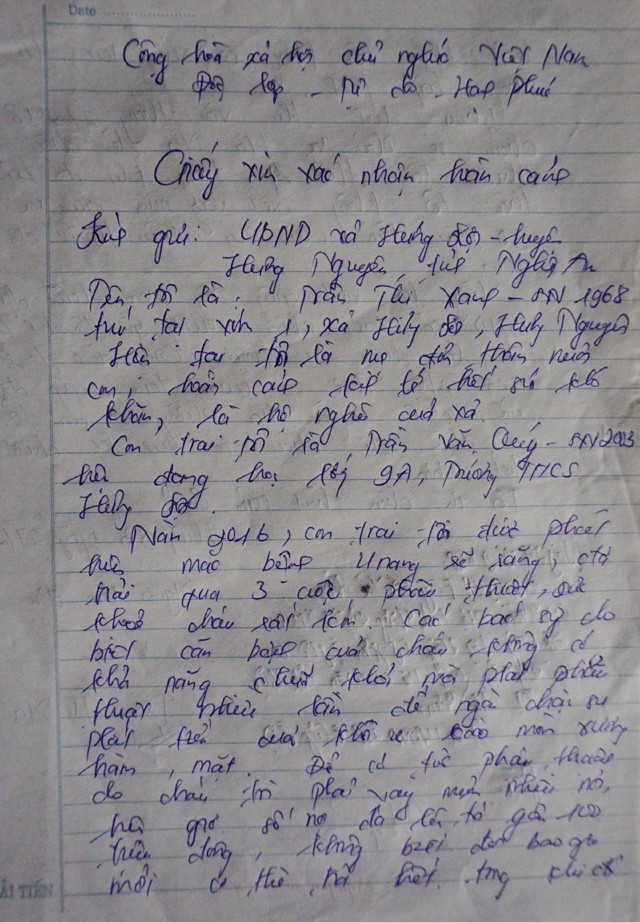 Date
Cộng hoà xã hội chủ nghĩa Việt Nam
Độc lập - Tự do - Hạnh phúc
Giấy xin xác nhận hoàn cảnh
Kính gửi: UBND xã Hưng Đạo - huyện
Hưng Nguyên, tỉnh Nghệ An
Tên tôi là: Trần Thị Xanh - SN 1968
trú tại xóm 1, xã Hưng Đạo, Hưng Nguyên
Hiện tại tôi là mẹ đơn thân nuôi
con, hoàn cảnh kinh tế hết sức khó
khăn, là hộ nghèo của xã.
Con trai tôi là Trần Văn Quý - SN 2003
hiện đang học lớp 9A, Trường THCS
Hưng Đạo.
Năm 2016, con trai tôi được phát
hiện mắc bệnh U nang rễ răng, đã
trải qua 3 cuộc phẫu thuật, sức
khoẻ cháu rất kém. Các bác sỹ cho
biết căn bệnh của cháu không có
khả năng chữa khỏi, mà phải phẫu
thuật nhiều lần để ngăn chặn sự
phát triển của khối u bào mòn xương
hàm, mặt. Để có tiền phẫu thuật
cho cháu tôi phải vay mượn nhiều nơi,
hiện giờ số nợ đã lên tới gần 100
triệu đồng, không biết đến bao giờ
mới có thể trả hết. trong khi đó
ẢI TIẾN